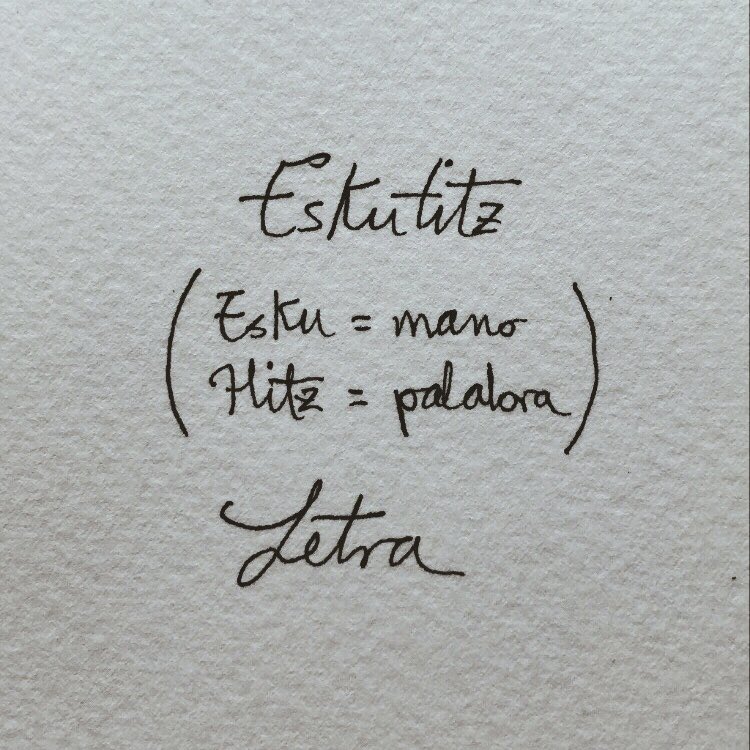 Eskutitz
(Esku = mano
Hitz = palabra)
Letra